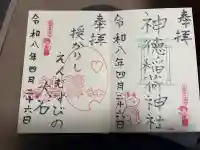 奉拝
神徳稲荷神社
令和八年四月二十六日
奉拝
授かりし
えんむすびの
大石
令和八年四月二十六日